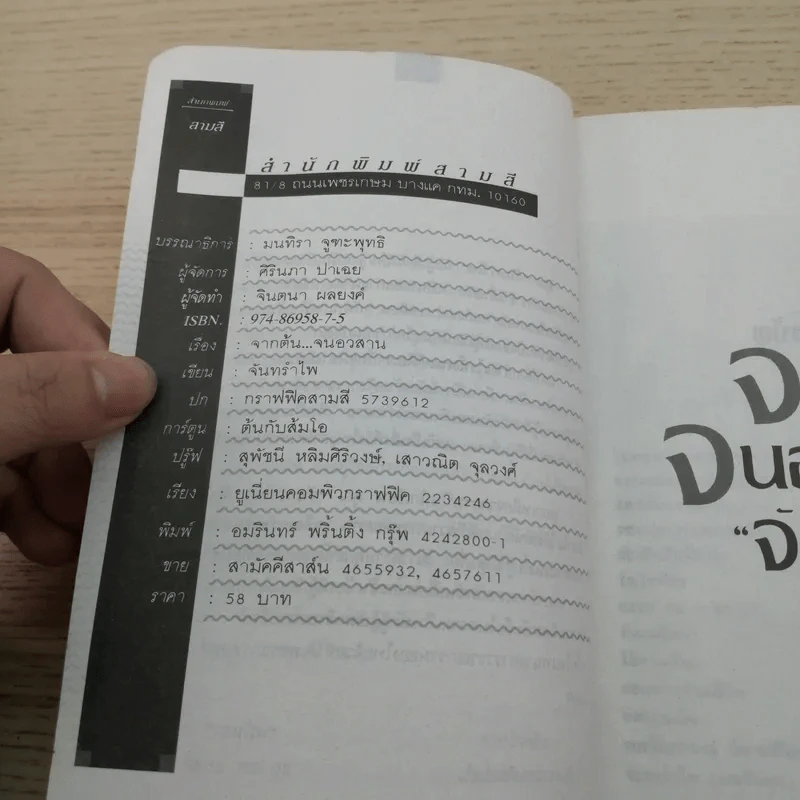 สำนักพิมพ์
สามสี
สำนักพิมพ์สามสี
81/8 ถนนเพชรเกษม บางแค กทม. 10160
บรรณาธิการ : มนทิรา จูฑะพุทธิ
ผู้จัดการ : ศิรินภา ปาเฉย
ผู้จัดทำ : จินตนา ผลยงค์
ISBN. : 974-86958-7-5
เรื่อง : จากต้น...จนอวสาน
เขียน : จันทรำไพ
ปก : กราฟฟิคสามสี 5739612
การ์ตูน : ต้นกับส้มโอ
ปรู๊ฟ : สุพัชนี หลิมศิริวงษ์, เสาวณิต จุลวงศ์
เรียง : ยูเนี่ยนคอมพิวกราฟฟิค 2234246
พิมพ์ : อมรินทร์ พริ้นติ้ง กรุ๊พ 4242800-1
ขาย : สามัคคีสาส์น 4655932, 4657611
ราคา : 58 บาท
จ
จนอ
“จั